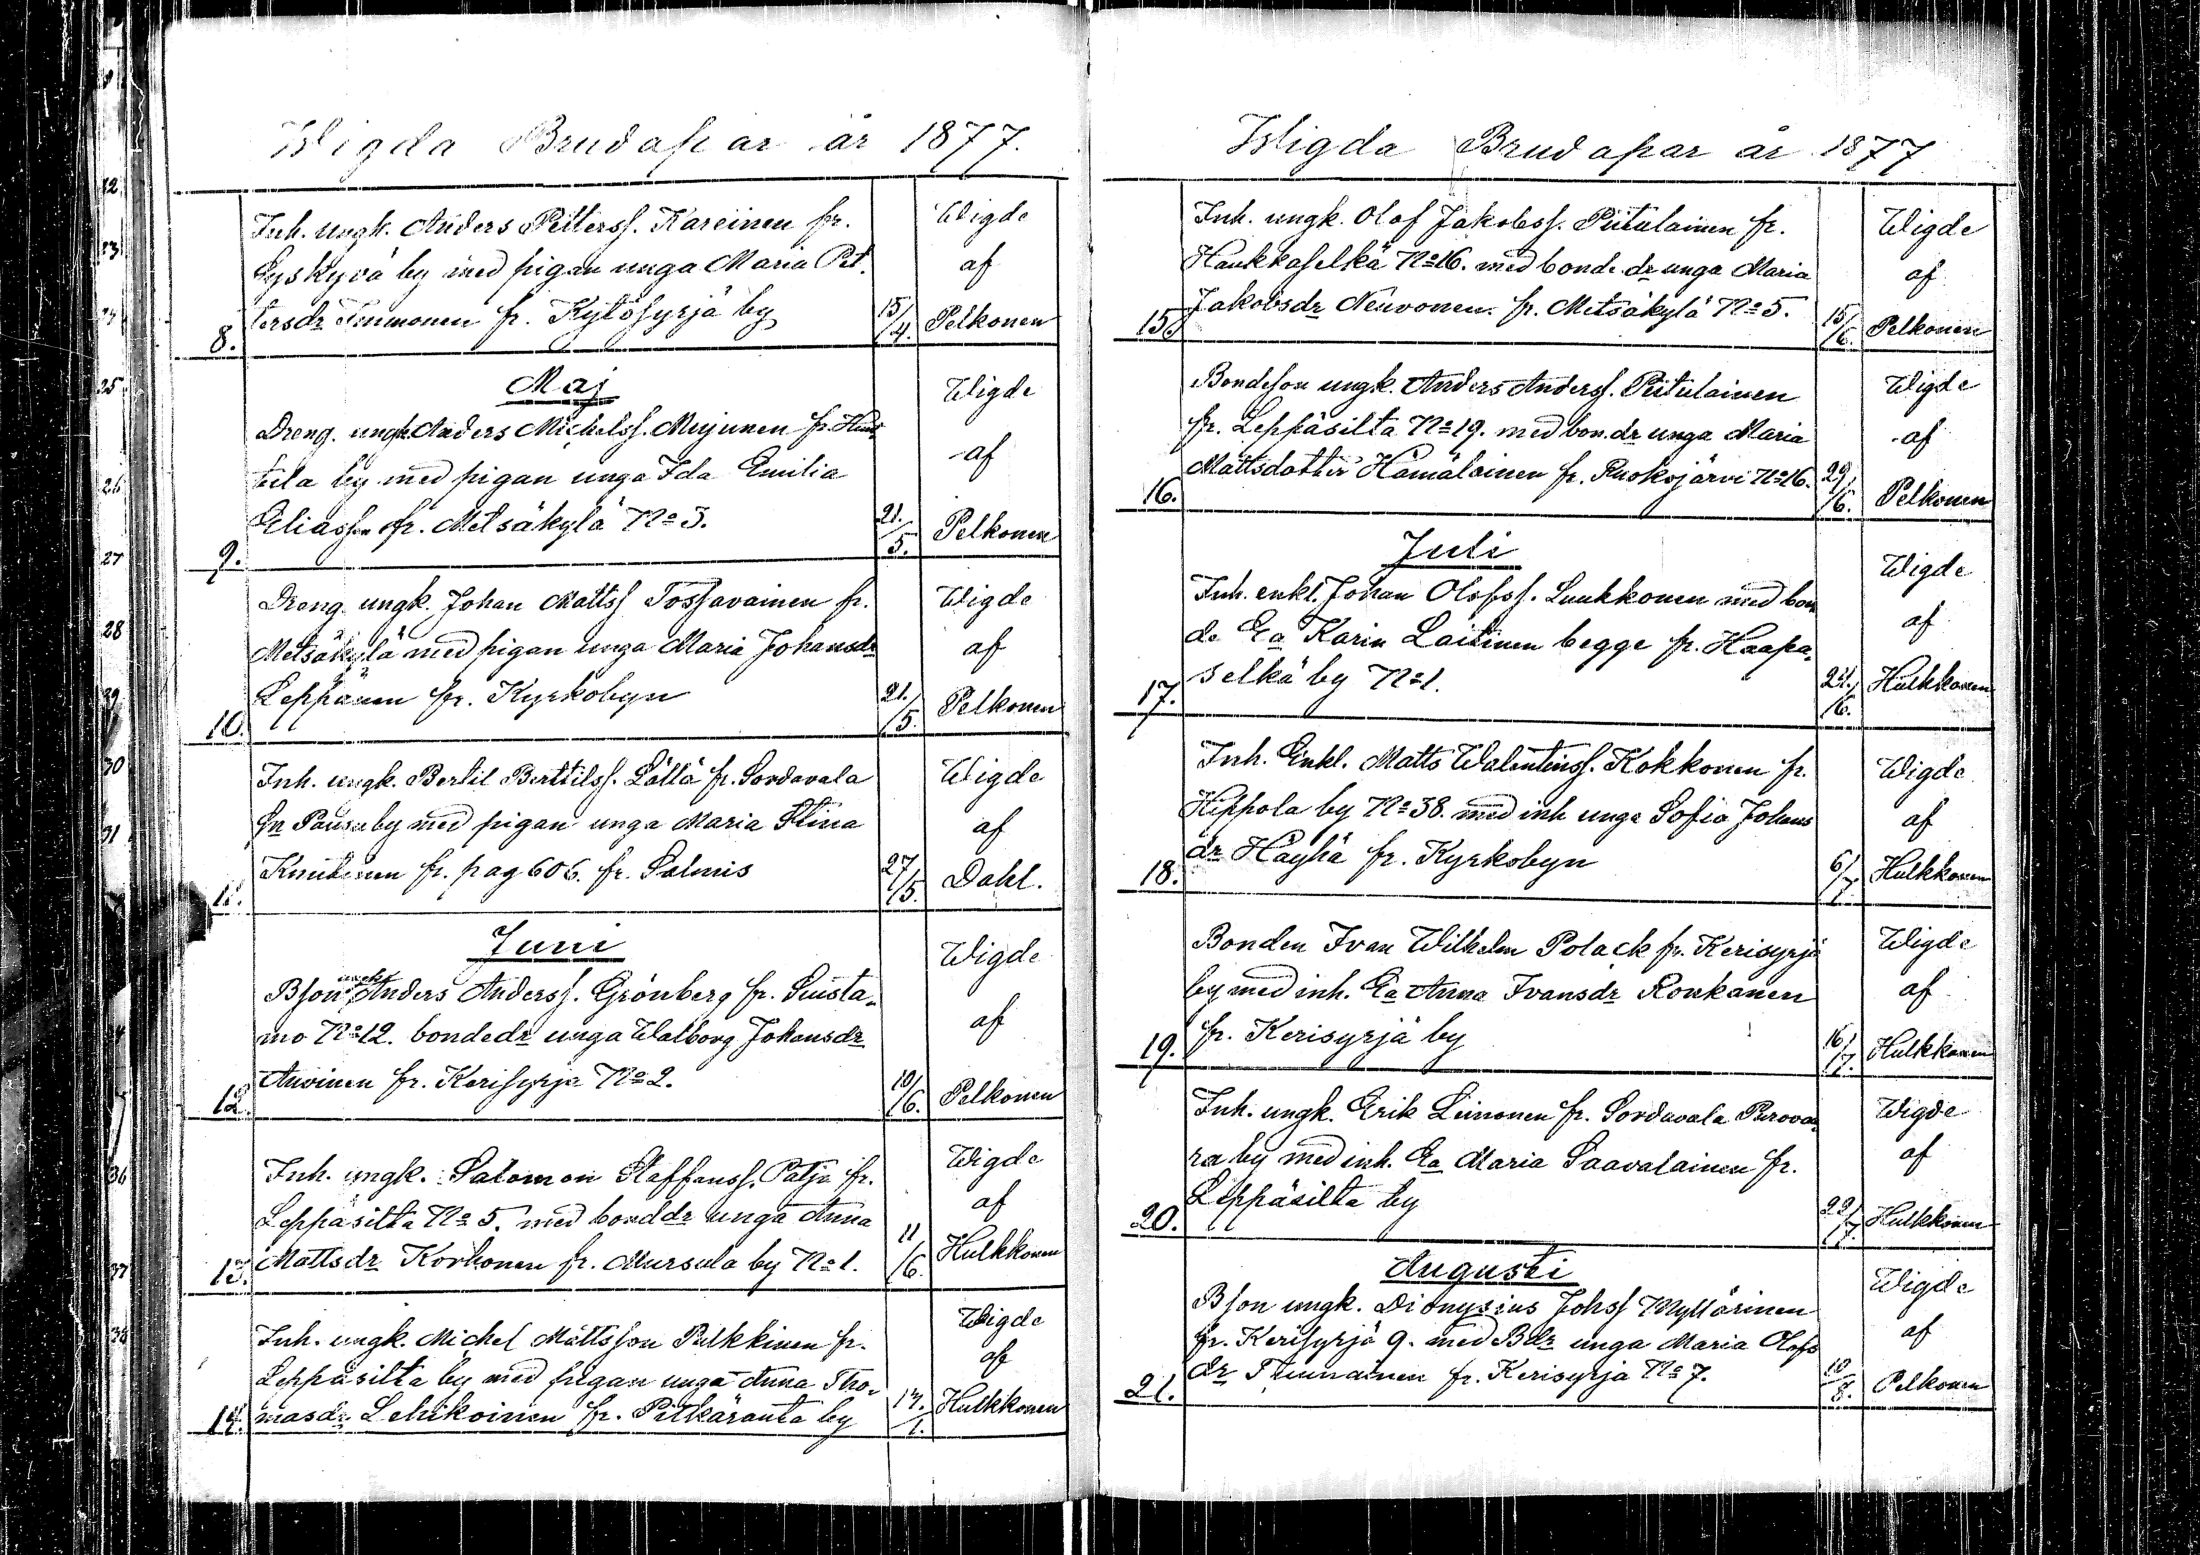 Wigda Brudapar år 1877.
Inh. ungk. Anders Pettersf. Kareinen fr. Wigde
Syskyvä by med pigan unga Maria Pet- af
8. tersdr Immonen fr. Kytösyrjä by 15/4. Pelkonen
Maj
Dreng. ungk Anders Michelsf. Mujunen fr. Wigde
tula by med pigan unga Ida Emilia af
9. Eliasson fr. Metsäkylä No 3. 21./5. Pelkonen
Dreng. ungk. Johan Mattsf Tossavainen fr. Wigde
Metsäkylä med pigan unga Maria Johansdr af
10. Leppänen fr. Kyrkobyn 21./5. Pelkonen
Inh. ungk. Bertil Berttilsf. Lättä fr. Sordavala Wigde
sn by med pigan unga Maria Stina af
11. fr. pag 606. fr. Salmis 27/5. Dahl.
Juni
Bson ungk Anders Andersf. Grönberg fr. Suista- Wigde
mo No 12. bondedr unga Walborg Johansdr af
12. Auvinen fr. Kerisyrjä No 2. 10/6. Pelkonen
Inh. ungk. Salomon Staffansf. Patja fr. Wigde
Leppäsilta No 5. med bonddr unga Anna af
13. Mattsdr Korhonen fr. Mursula by No 1. 11/6. Hulkkonen
Inh. ungk. Michel Mattsson Pulkkinen fr. Wigde
Leppäsilta by med pigan unga Anna Tho- af
14. masdr Lehikoinen fr. Pitkäranta by Hulkkonen
Wigda Brudapar år 1877
Inh. ungk. Olof Jakobsf. Piitulainen fr. Wigde
Haukkaselkä No 16. med bonde dr unga Maria af
15. Jakobsdr Neuvonen. fr. Metsäkylä No 5. 15/6. Pelkonen
Bondeson ungk. Anders Andersf. Piitulainen Wigde
fr. Leppäsilta No 19. med bon.dr unga Maria af
16. Mattsdotter Hämäläinen fr. Ruokojärvi No 16. 29/6. Pelkonen
Juli
Inh. enkl. Johan Olofsf. Luukkonen med bon Wigde
de Ea Karin Laitinen begge fr. Haapa- af
17. selkä by No 1. 24./6. Hulkkonen
Inh. Enkl. Matts Walentinsf. Kokkonen fr. Wigde
Hippola by No 38. med inh unga Sofia Johans af
18. dr Häyhä fr. Kyrkobyn 6/7 Hulkkonen
Bonden Ivan Wilhelm Polack fr. Kerisyrjä Wigde
by med inh. Ea Anna Ivansdr Ronkanen af
19. fr. Kerisyrjä by 16/7. Hulkkonen
Inh. ungk. Erik Leinonen fr. Sordavala Purovaa- Wigde
ra by med inh. Ea Maria Saavalainen fr. af
20. Leppäsilta by 22/7. Hulkkonen
Augusti
Bson ungk. Dionysius Johsf Myllärinen Wigde
fr. Kerisyrjä 9. med Bdr unga Maria Olofs af
21. dr fr. Kerisyrjä No 7. 10/8. Pelkonen